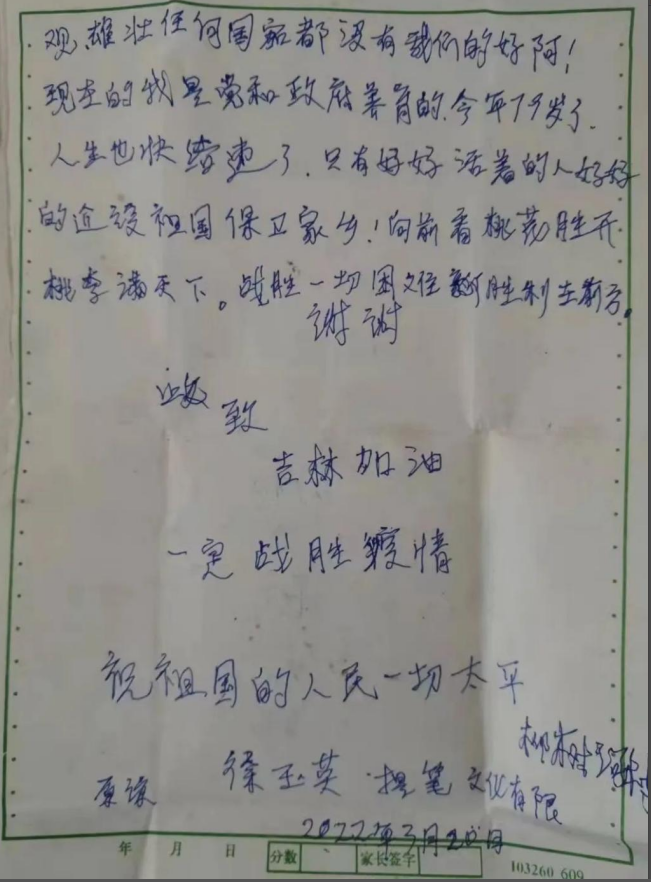 观雄壮任何国家都没有我们的好阿！
现在的我是党和政府养育的.今年79岁了.
人生也快结束了.只有好好活着的人好好
的建设祖国保卫家乡！向前看桃花胜开
桃李满天下。战胜一切困难胜利在前方。
谢谢
此致
吉林加油
一定战胜疫情
祝祖国的人民一切太平
柳树
原谅 徐玉英 提笔文化有限
2022年3月20日
年 月 日 分数 家长签字 103260 609